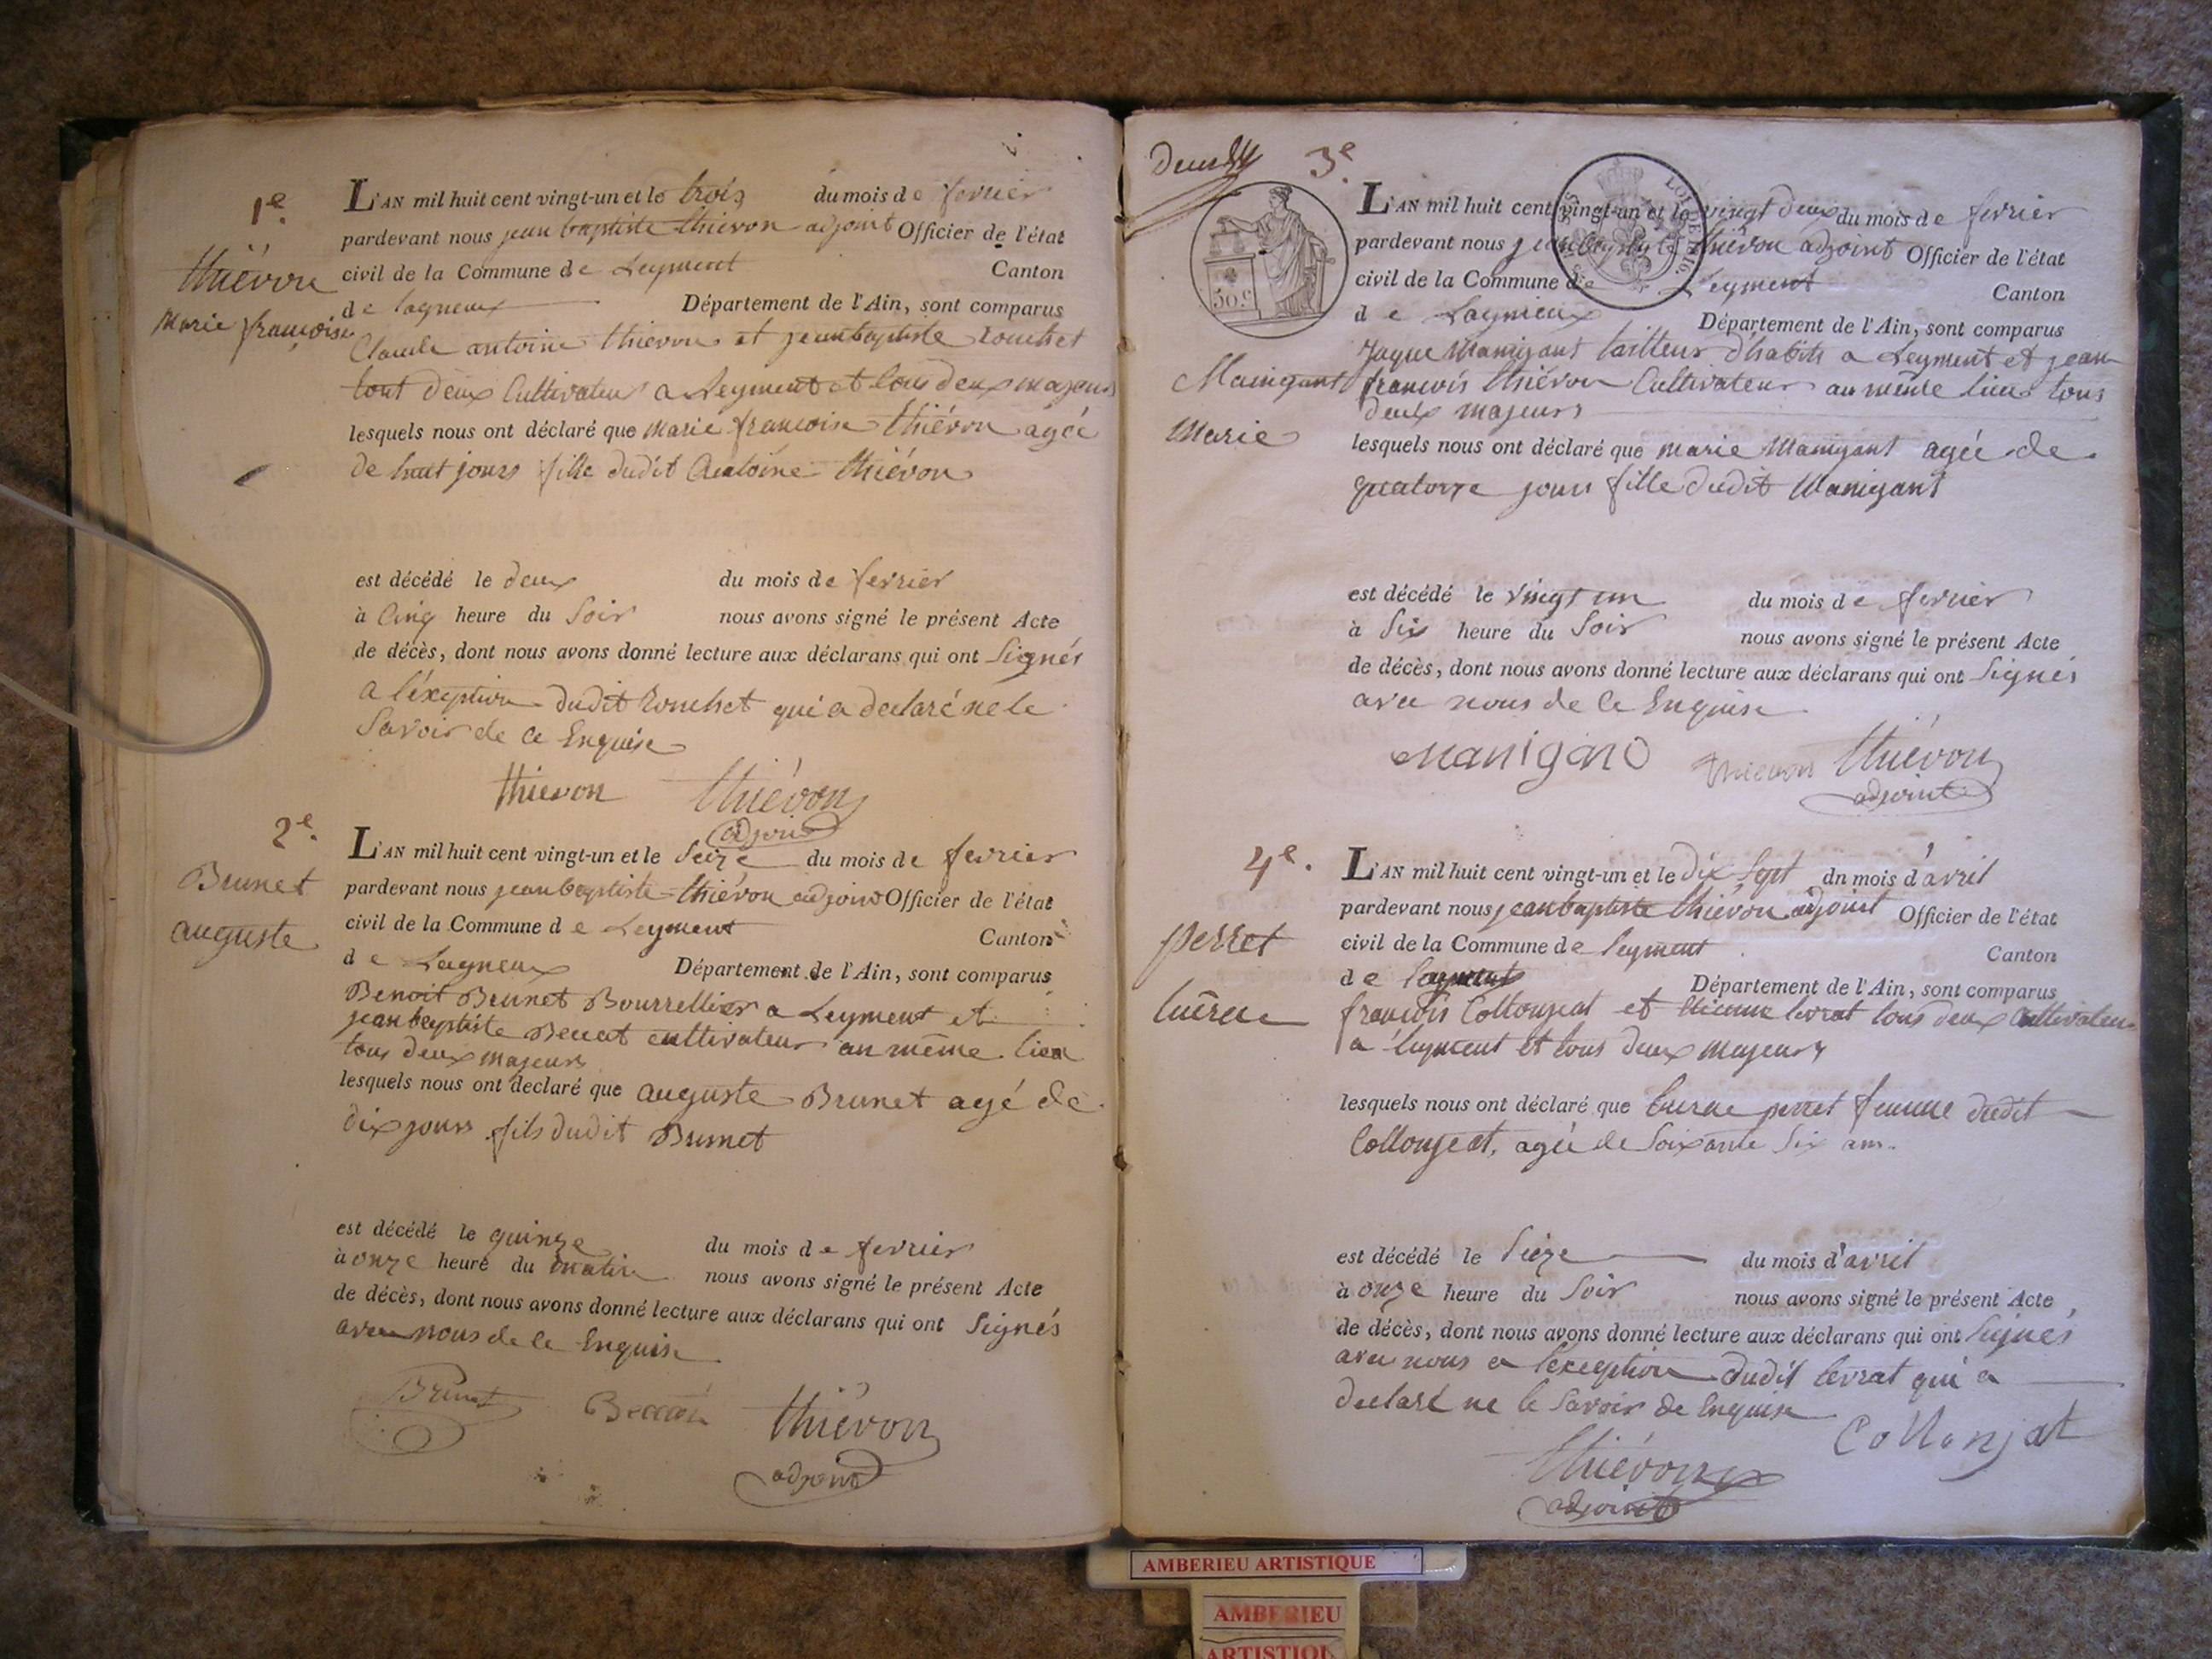 1e.
Thiévon
Marie françoise
L'AN mil huit cent vingt-un et le trois du mois de fevrier
pardevant nous jean baptiste thievon adjoint Officier de l'état
civil de la Commune de Leyment Canton
de lagneux Département de l'Ain, sont comparus
Claude antoine thievon et jean baptiste rouchet
tout deux Cultivateur a Leyment et tous deux majeurs
lesquels nous ont déclaré que marie françoise thiévon agée
de huit jours fille dudit Antoine thiévon
est décédé le deux du mois de fevrier
à Cinq heure du Soir nous avons signé le présent Acte
de décès, dont nous avons donné lecture aux déclarans qui ont Signés
a l'éxeption dudit rouchet qui a declaré ne le
Savoir de ce Enquise
thievon thiévon
adjoint
2e.
Brunet
auguste
L'AN mil huit cent vingt-un et le Seize du mois de fevrier
pardevant nous jean baptiste thiévon adjoint Officier de l'état
civil de la Commune de Leyment Canton
de Lagneux Département de l'Ain, sont comparus
Benoit Brunet Bourrellier a Leyment et
jean baptiste cultivateur au même lieu
tous deux majeurs
lesquels nous ont déclaré que auguste Brunet agé de
dix jours fils dudit Brunet
est décédé le quinze du mois de fevrier
à onze heure du matin nous avons signé le présent Acte
de décès, dont nous avons donné lecture aux déclarans qui ont Signés
avec nous de ce Enquise
Brunet thiévon
adjoint
3e.
50.c
Manigant
Marie
L'AN mil huit cent vingt-un et le vingt deux du mois de fevrier
pardevant nous jean baptiste thiévon adjoint Officier de l'état
civil de la Commune de Leyment Canton
de Lagnieux Département de l'Ain, sont comparus
Jaque Manigant tailleur d'habits a Leyment et jean
francois thiévon Cultivateur au même lieu tous
deux majeurs
lesquels nous ont déclaré que marie Manigant agée de
quatorze jours fille dudit Manigant
est décédé le vingt un du mois de fevrier
à Six heure du Soir nous avons signé le présent Acte
de décès, dont nous avons donné lecture aux déclarans qui ont Signés
avec nous de ce Enquise
Manigand thievon thiévon
adjoint
4e.
perret
L'AN mil huit cent vingt-un et le dix Sept du mois d'avril
pardevant nous jean baptiste thiévon adjoint Officier de l'état
civil de la Commune de leyment Canton
de Département de l'Ain, sont comparus
françois Collonjeat et levrat tous deux Cultivateurs
a leyment et tous deux majeurs
lesquels nous ont déclaré que perret femme dudit
Collonjeat, agée de Soixante Six ans.
est décédé le Sieze du mois d'avril
à onze heure du Soir nous avons signé le présent Acte
de décès, dont nous avons donné lecture aux déclarans qui ont Signés
avec nous a l'exception dudit levrat qui a
declaré ne le Savoir de Enquise
Collonjat
thiévon
adjoint
AMBERIEU ARTISTIQUE
AMBERIEU